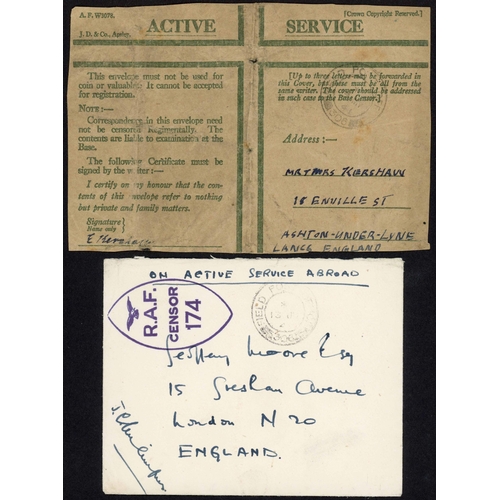 A. F. W3078.
[Crown Copyright Reserved.]
J. D. & Co., Apsley.
ACTIVE SERVICE
This envelope must not be used for
coin or valuables. It cannot be accepted
for registration.
NOTE:—
Correspondence in this envelope need
not be censored Regimentally. The
contents are liable to examination at the
Base.
The following Certificate must be
signed by the writer:—
I certify on my honour that the con-
tents of this envelope refer to nothing
but private and family matters.
Signature
Name only
E Kershaw
[Up to three letters may be forwarded in
this Cover, but these must all be from the
same writer. The cover should be addressed
in such case to the Base Censor.]
Address:—
MR & MRS KERSHAW
15 ENVILLE ST
ASHTON-UNDER-LYNE
LANCS ENGLAND
ON ACTIVE SERVICE ABROAD
R.A.F.
CENSOR
174
FIELD
Geoffrey Moore Esq
15 Gresham Avenue
London N 20
ENGLAND.